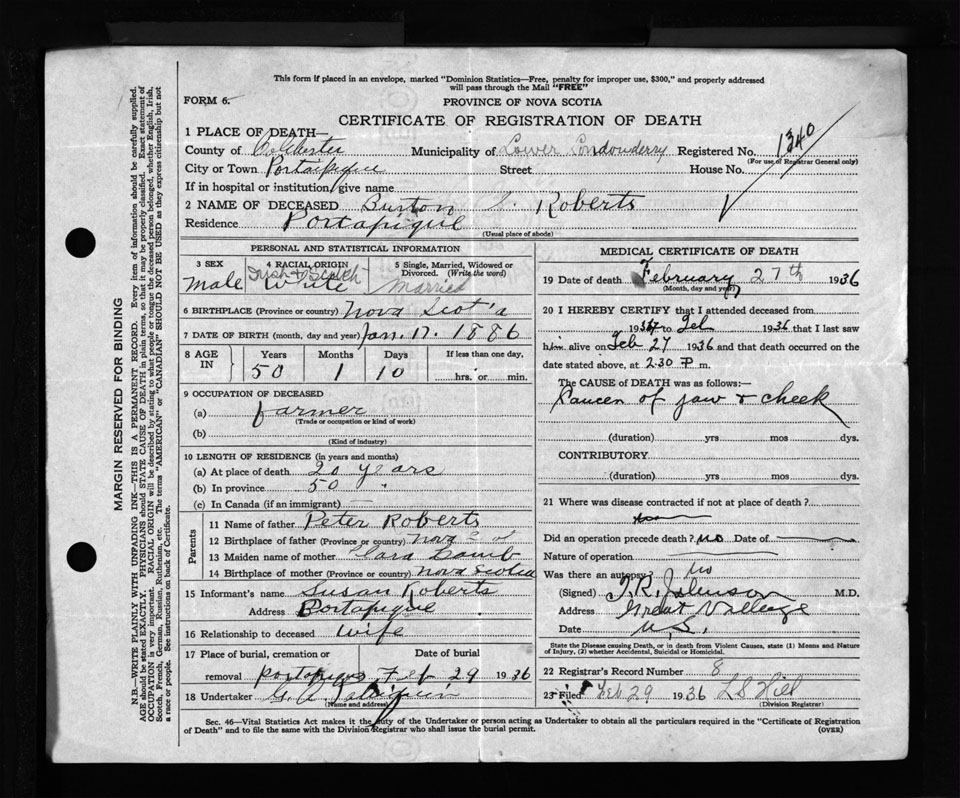 This form if placed in an envelope, marked "Dominion Statistics—Free, penalty for improper use, $300," and properly addressed
will pass through the Mail "FREE"
FORM 6.
PROVINCE OF NOVA SCOTIA
CERTIFICATE OF REGISTRATION OF DEATH
1 PLACE OF DEATH—
County of Colchester Municipality of Lower Londonderry Registered No. 1340
(For use of Registrar General only)
City or Town Portapique Street House No.
If in hospital or institution, give name
2 NAME OF DECEASED Burton Roberts
Residence Portapique
(Usual place of abode)
PERSONAL AND STATISTICAL INFORMATION
3 SEX Male
4 RACIAL ORIGIN Irish & Scotch White
5 Single, Married, Widowed or Divorced. (Write the word) Married
6 BIRTHPLACE (Province or country) Nova Scotia
7 DATE OF BIRTH (month, day and year) Jan. 17. 1886
8 AGE IN Years Months Days If less than one day,
50 1 10 hrs. or min.
9 OCCUPATION OF DECEASED
(a) farmer
(Trade or occupation or kind of work)
(b)
(Kind of industry)
10 LENGTH OF RESIDENCE (in years and months)
(a) At place of death 20 years
(b) In province 50 "
(c) In Canada (if an immigrant)
Parents
11 Name of father Peter Roberts
12 Birthplace of father (Province or country) Nova Scot
13 Maiden name of mother
14 Birthplace of mother (Province or country) Nova Scotia
15 Informant's name Susan Roberts
Address Portapique
16 Relationship to deceased wife
17 Place of burial, cremation or removal Date of burial
Portapique Feb 29 1936
18 Undertaker G. A.
(Name and address)
MEDICAL CERTIFICATE OF DEATH
19 Date of death February 27th 1936
(Month, day and year)
20 I HEREBY CERTIFY that I attended deceased from
193 to Feb 1936 that I last saw
him alive on Feb 27 1936 and that death occurred on the
date stated above, at 2.30 P m.
The CAUSE of DEATH was as follows:—
Cancer of jaw & cheek
(duration) yrs mos. dys.
CONTRIBUTORY
(duration) yrs mos. dys.
21 Where was disease contracted if not at place of death?
Did an operation precede death? no Date of
Nature of operation
Was there an autopsy? no
(Signed) T. R. Johnson M.D.
Address Great Village
Date N.S.
State the Disease causing Death, or in death from Violent Causes, state (1) Means and Nature
of Injury, (2) whether Accidental, Suicidal or Homicidal.
22 Registrar's Record Number 8
23 Filed Feb 29 1936
(Division Registrar)
Sec. 46—Vital Statistics Act makes it the duty of the Undertaker or person acting as Undertaker to obtain all the particulars required in the "Certificate of Registration
of Death" and to file the same with the Division Registrar who shall issue the burial permit.
(OVER)
MARGIN RESERVED FOR BINDING
N.B.—WRITE PLAINLY WITH UNFADING INK—THIS IS A PERMANENT RECORD. Every item of information should be carefully supplied.
AGE should be stated EXACTLY. PHYSICIANS should STATE CAUSE OF DEATH in plain terms, so that it may be properly classified. Exact statement of
OCCUPATION is very important. RACIAL ORIGIN will be described by stating to what people or tongue the deceased person belonged, whether English, Irish,
Scotch, French, German, Russian, Ruthenian, etc. The terms "AMERICAN" or "CANADIAN" SHOULD NOT BE USED as they express citizenship but not
a race or people. See instructions on back of Certificate.